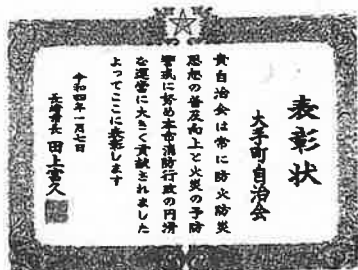 表彰状
大手町自治会
貴自治会は常に防火防災
思想の普及向上と火災の予防
警戒に努め本市消防行政の円滑
な運営に大きく貢献されました
よってここに表彰します
令和四年一月七日
長崎市長 田上富久